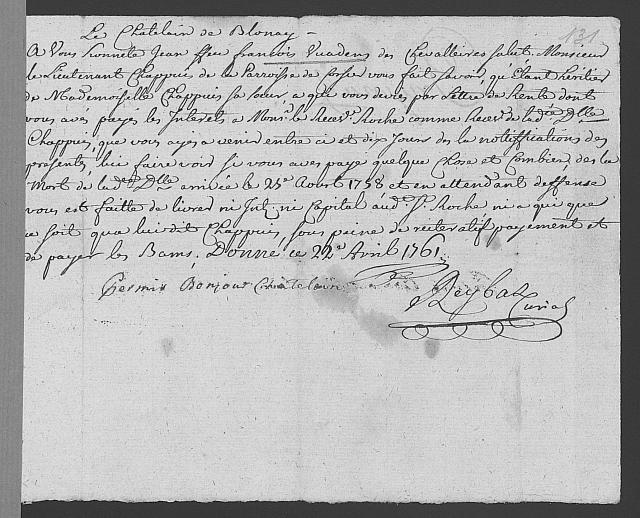 131
Le Chatelain de Blonay
A Vous honnete Jean ffeu françois Vuadens des Chevalleires salut. Monsieur
le Lieutenant Chappuis de la Parroisse de vous fait savoir, qu'Etant héritier
de Mademoiselle Chappuis sa sœur a qui vous deviés par Lettre de Rente dont
vous avés payés les Interets a Monsr. le Recevr. Roche comme Recevr. de ladte. Dlle
Chappuis, que vous ayés a venir entre ci et dix Jours des la notiffication des
presentes, lui faire voir si vous avés payé quelque Chose et Combien des la
Mort de lade. Dlle arrivée le 25e Aoust 1758 et en attendant deffense
vous est faitte de livrer ni Int. ni Capital aud. Sr. Roche ni a qui que
ce soit que lui dit Chappuis, sous peine de reiteratif payement et
de payer les Bams, Donné ce 22e Avril 1761.
Permis Bonjour Chatelain
Reybaz
Curial